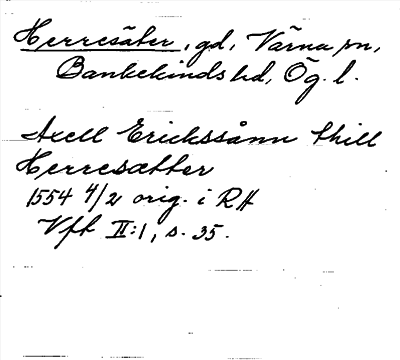 Herresäter, gd, Värna sn,
Bankekinds hd, Ög. l.
Axell Erickssånn thill
Herresætter
1554 4/2 orig. i RA
Vfh II:1, s. 35.